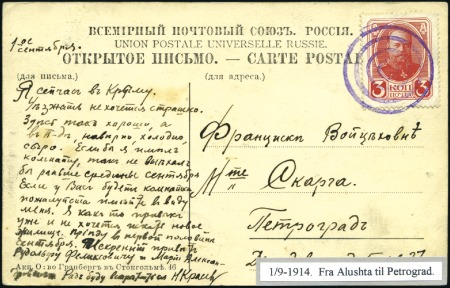 ВСЕМІРНЫЙ ПОЧТОВЫЙ СОЮЗЪ. РОССІЯ.
UNION POSTALE UNIVERSELLE RUSSIE.
ОТКРЫТОЕ ПИСЬМО. — CARTE POSTALE
(для письма.)
(для адреса.)
1ое
сентября.
3 КОП 3
Я сейчас въ Крыму.
Уѣзжать не хочется страшно.
Здѣсь такъ хорошо, а
въ П-дѣ, навѣрно, холодно,
сыро. Если бъ я имѣлъ
комнату, такъ не выѣхалъ
бы раньше средины сентября
Если у Васъ будетъ комнатка
пожалуйста имѣйте въ виду
меня. Я какъ то привыкъ
уже и не хочется искать новое
Пріѣду въ первой половинѣ
сентября. Искренній привѣтъ
Рудольфу Феликсовичу и Мартѣ
Радъ буду
Францискѣ Войцѣховнѣ
Mme Скарга.
Петроградъ
Акц. О-во Гранбергъ въ Стокгольмѣ. 46
1/9-1914. Fra Alushta til Petrograd.